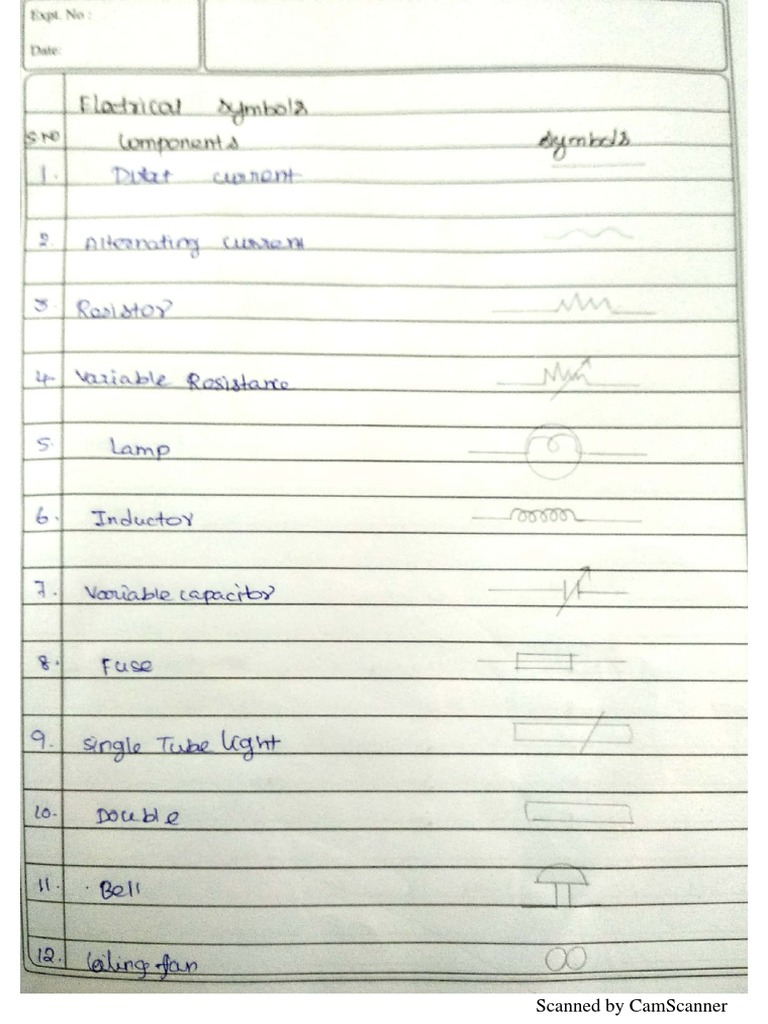 Expt. No :
Date:
Electrical symbols
S.NO components symbols
1. Dirat current
2. Alternating current
3. Resistor
4. Variable Resistance
5. Lamp
6. Inductor
7. Variable capacitor
8. Fuse
9. single Tube light
10. Double
11. Bell
12. Ceiling fan
Scanned by CamScanner